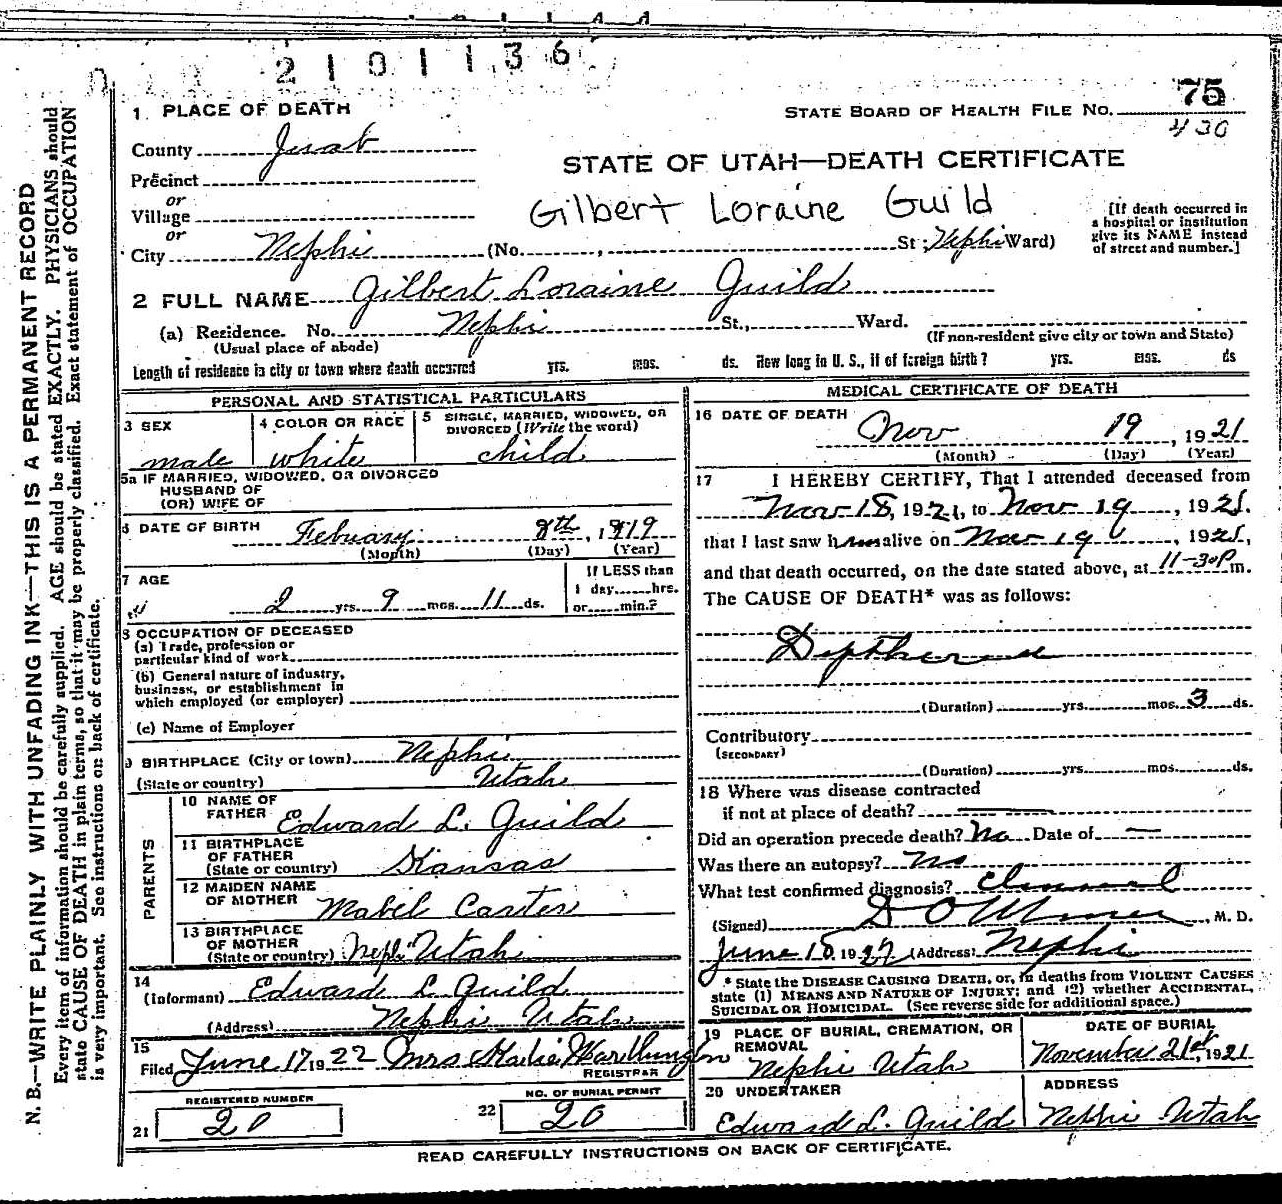 2101136
75
1 PLACE OF DEATH
STATE BOARD OF HEALTH FILE NO.
430
County Juab
STATE OF UTAH—DEATH CERTIFICATE
Precinct
or
Village
Gilbert Loraine Guild
[If death occurred in a hospital or institution give its NAME instead of street and number.]
or
City Nephi (No. , St; Nephi Ward)
2 FULL NAME Gilbert Loraine Guild
(a) Residence. No. Nephi St., Ward.
(Usual place of abode)
(If non-resident give city or town and State)
Length of residence in city or town where death occurred yrs. mos. ds. How long in U. S., if of foreign birth? yrs. mos. ds
PERSONAL AND STATISTICAL PARTICULARS
3 SEX
male
4 COLOR OR RACE
white
5 SINGLE, MARRIED, WIDOWED, OR DIVORCED (Write the word)
child
5a IF MARRIED, WIDOWED, OR DIVORCED
HUSBAND OF
(OR) WIFE OF
6 DATE OF BIRTH Febuary 8th, 1919
(Month) (Day) (Year)
7 AGE
2 yrs. 9 mos. 11 ds.
If LESS than
1 day......hrs.
or......min.?
8 OCCUPATION OF DECEASED
(a) Trade, profession or
particular kind of work
(b) General nature of industry,
business, or establishment in
which employed (or employer)
(c) Name of Employer
9 BIRTHPLACE (City or town) Nephi
(State or country) Utah
PARENTS
10 NAME OF
FATHER Edward L. Guild
11 BIRTHPLACE
OF FATHER
(State or country) Kansas
12 MAIDEN NAME
OF MOTHER Mabel Carter
13 BIRTHPLACE
OF MOTHER
(State or country) Neph Utah
14
(Informant) Edward L Guild
(Address) Nephi Utah
15
Filed June 17 1922 Mrs
REGISTRAR
REGISTERED NUMBER
21 20
NO. OF BURIAL PERMIT
22 20
MEDICAL CERTIFICATE OF DEATH
16 DATE OF DEATH
Nov 19, 1921
(Month) (Day) (Year)
17 I HEREBY CERTIFY, That I attended deceased from
Nov 18, 1921, to Nov 19, 1921.
that I last saw him alive on Nov 19, 1921,
and that death occurred, on the date stated above, at 11-30P m.
The CAUSE OF DEATH* was as follows:
Diptheria
(Duration) yrs. mos. 3 ds.
Contributory
(SECONDARY)
(Duration) yrs. mos. ds.
18 Where was disease contracted
if not at place of death?
Did an operation precede death? No Date of —
Was there an autopsy? No
What test confirmed diagnosis? Clinical
(Signed) , M. D.
June 18 1922 (Address) Nephi
* State the DISEASE CAUSING DEATH, or, in deaths from VIOLENT CAUSES
state (1) MEANS AND NATURE OF INJURY; and (2) whether ACCIDENTAL,
SUICIDAL OR HOMICIDAL. (See reverse side for additional space.)
19 PLACE OF BURIAL, CREMATION, OR
REMOVAL
Nephi Utah
DATE OF BURIAL
November 21st, 1921
20 UNDERTAKER
Edward L. Guild
ADDRESS
Nephi Utah
READ CAREFULLY INSTRUCTIONS ON BACK OF CERTIFICATE.
N. B.—WRITE PLAINLY WITH UNFADING INK—THIS IS A PERMANENT RECORD
Every item of information should be carefully supplied. AGE should be stated EXACTLY. PHYSICIANS should
state CAUSE OF DEATH in plain terms, so that it may be properly classified. Exact statement of OCCUPATION
is very important. See instructions on back of certificate.